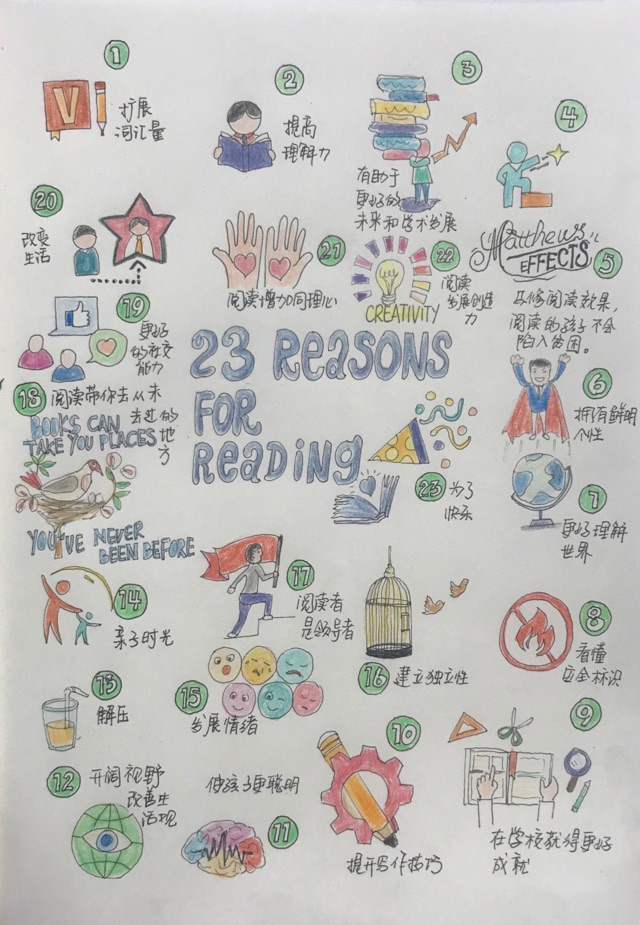 1
扩展
词汇量
2
提高
理解力
3
有助于
更好的
未来和学术发展
4
Matthews'
EFFECTS
5
马修阅读效果,
阅读的孩子不会
陷入贫困。
6
拥有鲜明
个性
7
更好理解
世界
8
看懂
安全标识
9
在学校获得更好
成就
10
提升写作技巧
11
使孩子更聪明
12
开阔视野
改善生
活现
13
解压
14
亲子时光
15
发展情绪
16
建立独立性
17
阅读者
是领导者
18
阅读带你去从未
去过的
地方
BOOKS CAN
TAKE YOU PLACES
YOU'VE NEVER
BEEN BEFORE
19
更好
的社交
能力
20
改变
生活
21
阅读增加同理心
22
阅读
发展创造
力
CREATIVITY
23
为了
快乐
23 REASONS
FOR
READING
V